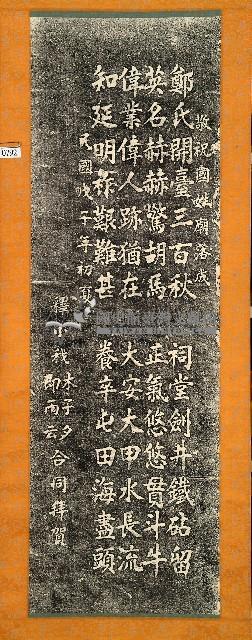 敬祝國姓廟落成
鄭氏開臺三百秋 祠堂劍井鐵砧留
英名赫赫驚胡馬 正氣悠悠貫斗牛
偉業偉人跡猶在 大安大甲水長流
知延明祚艱難甚 養辛屯田海盡頭
民國戊午年初夏
合同拜賀